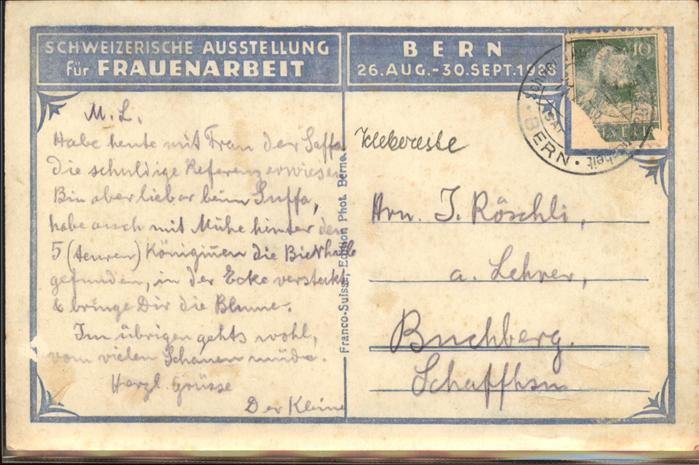 SCHWEIZERISCHE AUSSTELLUNG
für FRAUENARBEIT
BERN
26. AUG.-30. SEPT. 1928
10
BERN
M. L.
Habe heute mit Frau der Saffa
die schuldige Referenz erwiesen
Bin aber lieber beim Suffa,
habe auch mit Mühe hinter den
5 (teuren) Königinnen die Bierhalle
gefunden, in der Ecke versteckt
& bringe Dir die Blume.
Im übrigen gehts wohl,
vom vielen Schauen müde.
Herzl. Grüsse
Der Kleine
Franco-Suisse, Edition Phot. Berne.
Klebereste
Hrn. J. Röschli,
a. Lehrer,
Buchberg.
Schaffhsn